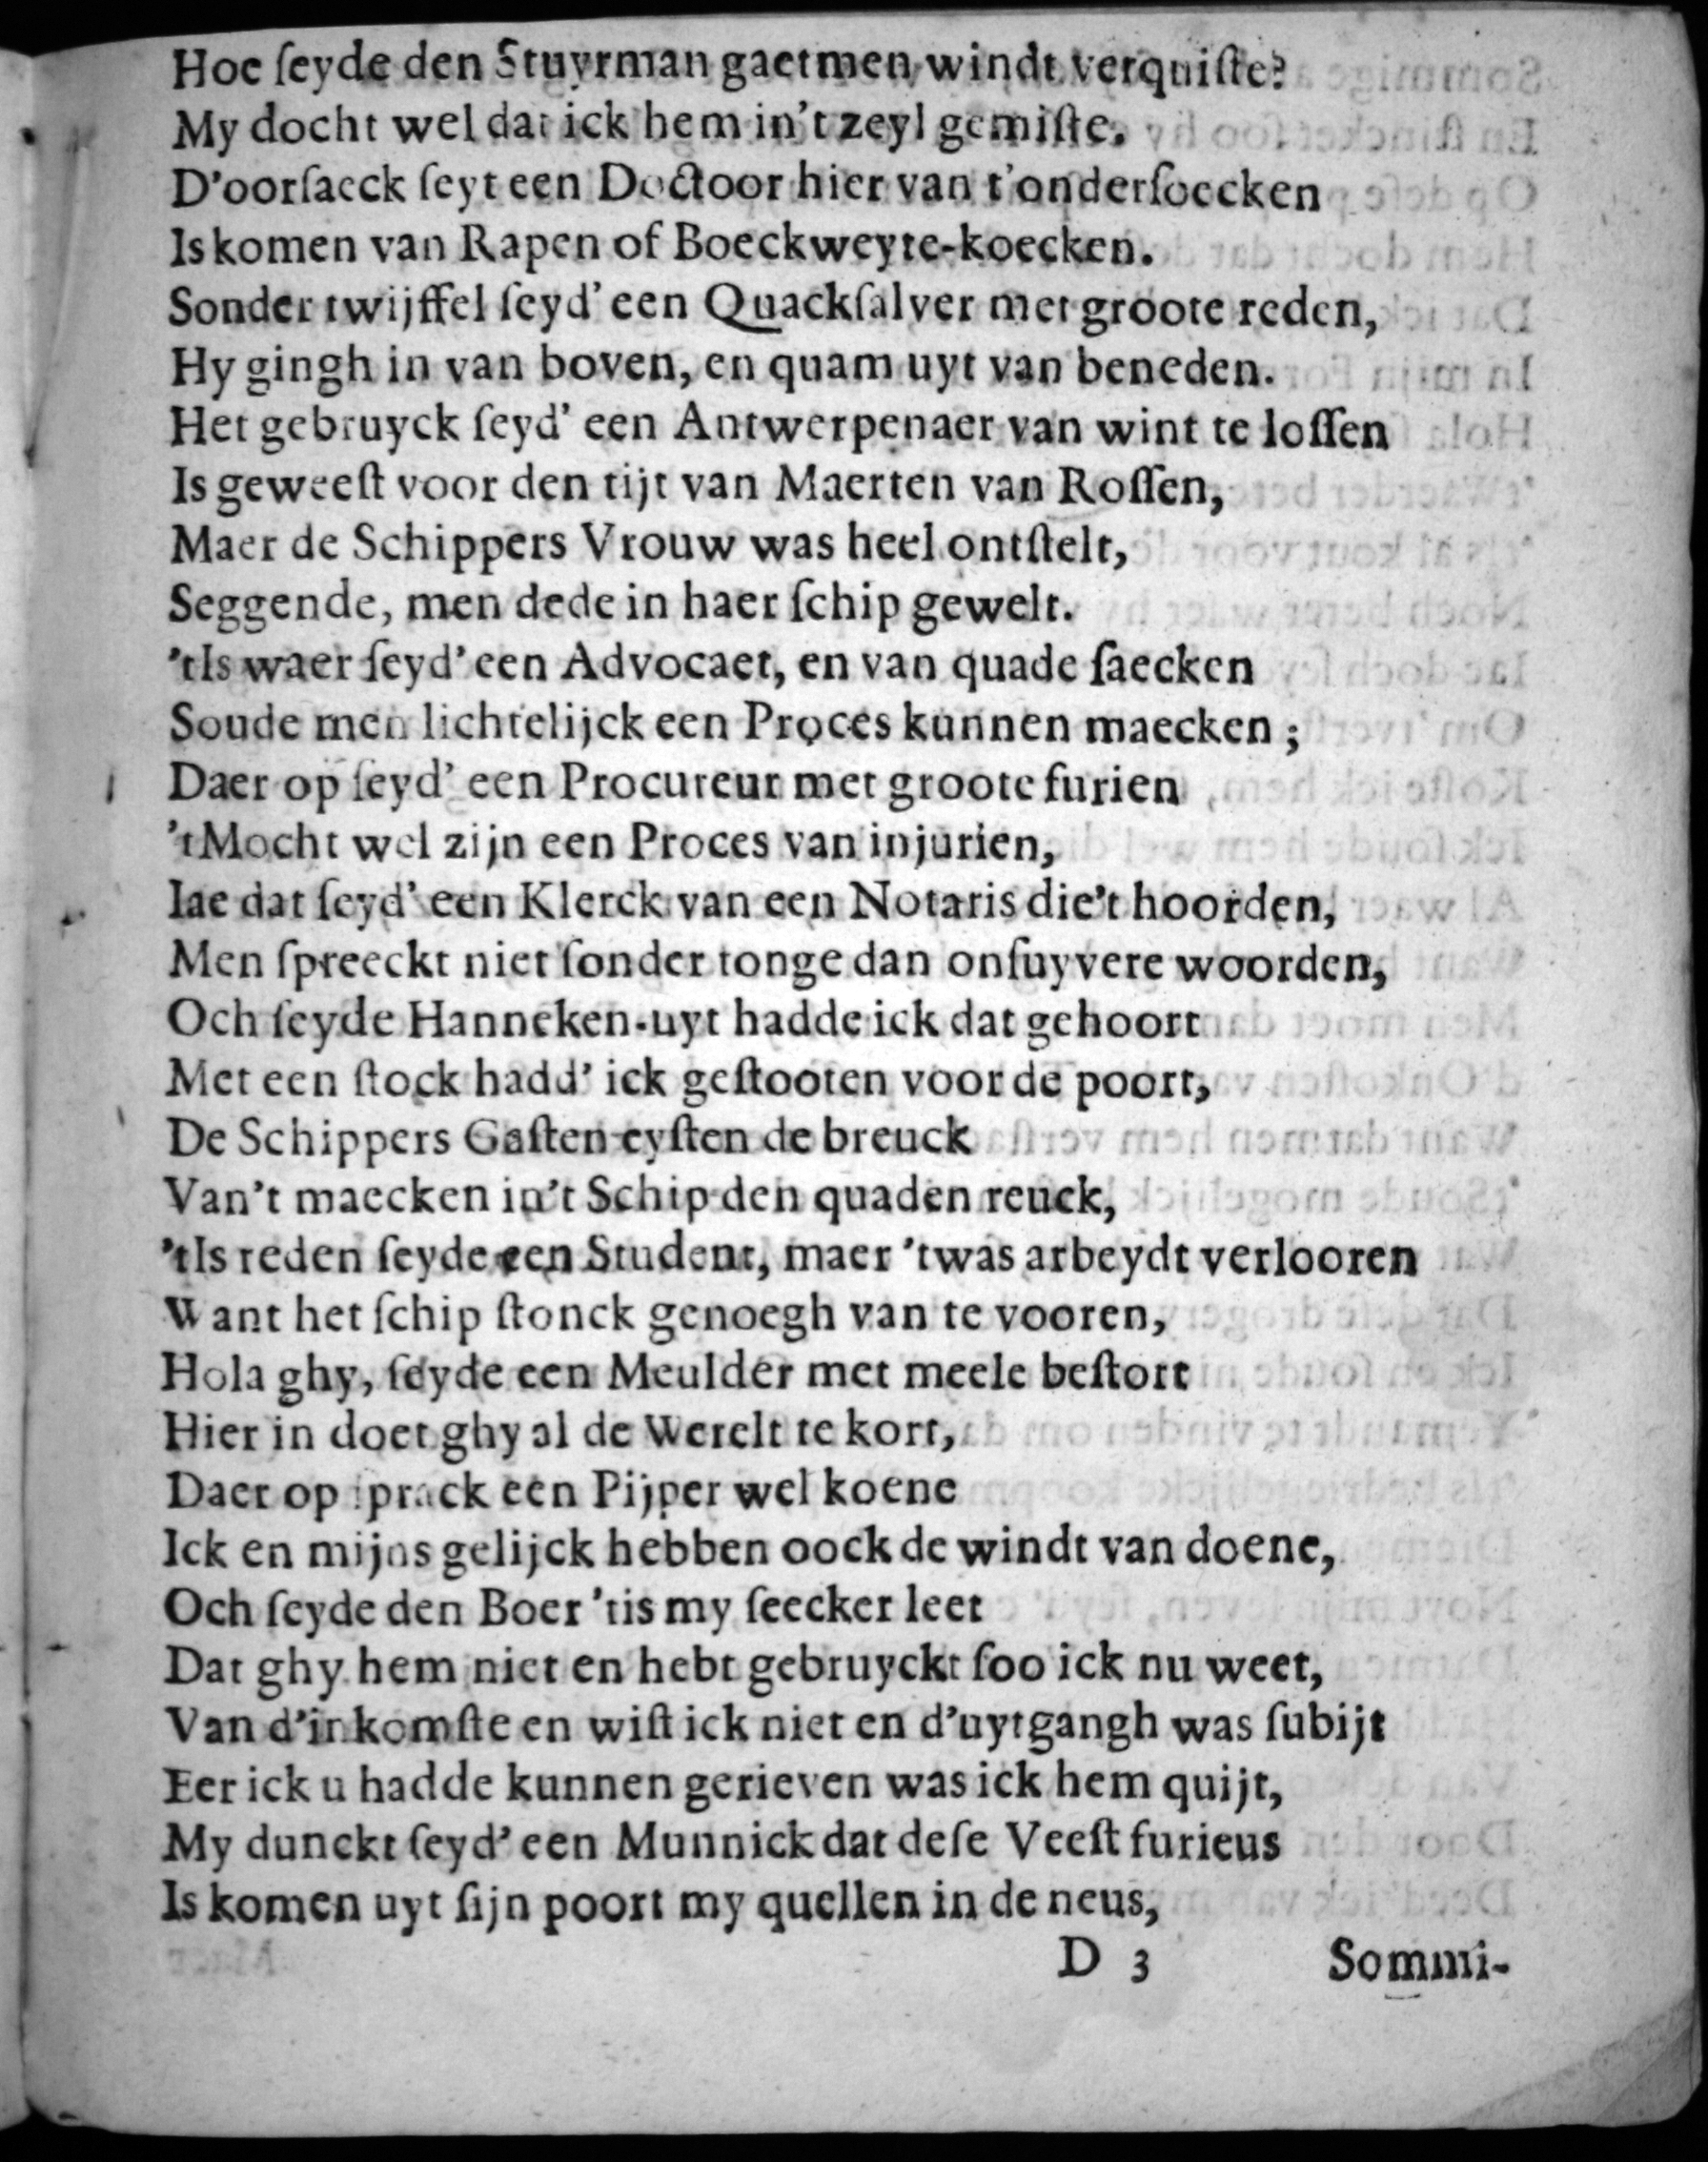 Hoe ſeyde den Stuyrman gaetmen windt verquiſte?
My docht wel dat ick hem in't zeyl gemiſte.
D'oorſaeck ſeyt een Doctoor hier van t'onderſoecken
Is komen van Rapen of Boeckweyte-koecken.
Sonder twijffel ſeyd' een Quackſalver met groote reden,
Hy gingh in van boven, en quam uyt van beneden.
Het gebruyck ſeyd' een Antwerpenaer van wint te loſſen
Is geweeſt voor den tijt van Maerten van Roſſen,
Maer de Schippers Vrouw was heel ontſtelt,
Seggende, men dede in haer ſchip gewelt.
'tIs waer ſeyd' een Advocaet, en van quade ſaecken
Soude men lichtelijck een Proces kunnen maecken;
Daer op ſeyd' een Procureur met groote furien
'tMocht wel zijn een Proces van injurien,
Iae dat ſeyd' een Klerck van een Notaris die't hoorden,
Men ſpreeckt niet ſonder tonge dan onſuyvere woorden,
Och ſeyde Hanneken-uyt hadde ick dat gehoort
Met een ſtock hadd' ick geſtooten voor de poort,
De Schippers Gaſten eyſten de breuck
Van't maecken in't Schip den quaden reuck,
'tIs reden ſeyde een Student, maer 'twas arbeydt verlooren
Want het ſchip ſtonck genoegh van te vooren,
Hola ghy, ſeyde een Meulder met meele beſtort
Hier in doet ghy al de Werelt te kort,
Daer op ſprack een Pijper wel koene
Ick en mijns gelijck hebben oock de windt van doene,
Och ſeyde den Boer 'tis my ſeecker leet
Dat ghy hem niet en hebt gebruyckt ſoo ick nu weet,
Van d'inkomſte en wiſt ick niet en d'uytgangh was ſubijt
Eer ick u hadde kunnen gerieven was ick hem quijt,
My dunckt ſeyd' een Munnick dat deſe Veeſt furieus
Is komen uyt ſijn poort my quellen in de neus,
D 3 Sommi-